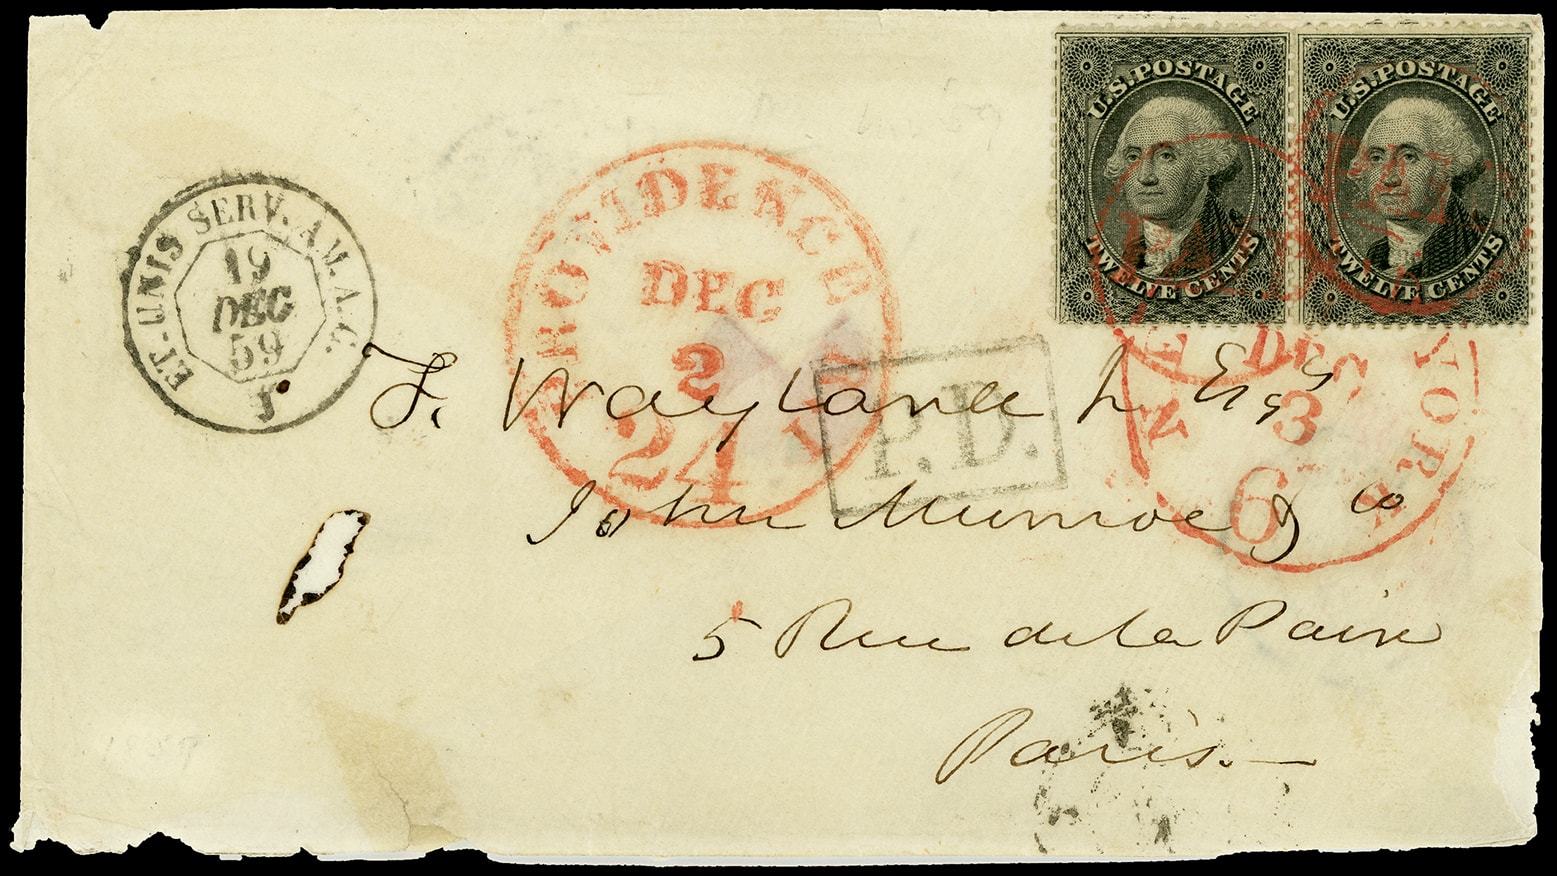 U.S. POSTAGE
TWELVE CENTS
U.S. POSTAGE
TWELVE CENTS
ET. UNIS SERV. AM. A.C.
19
DEC
59
PROVIDENCE
DEC
2
24
NEW YORK
DEC
3
6
PAID
P.D.
F. Wayland Jr Esq
John Munroe & Co
5 Rue de la Paix
Paris.